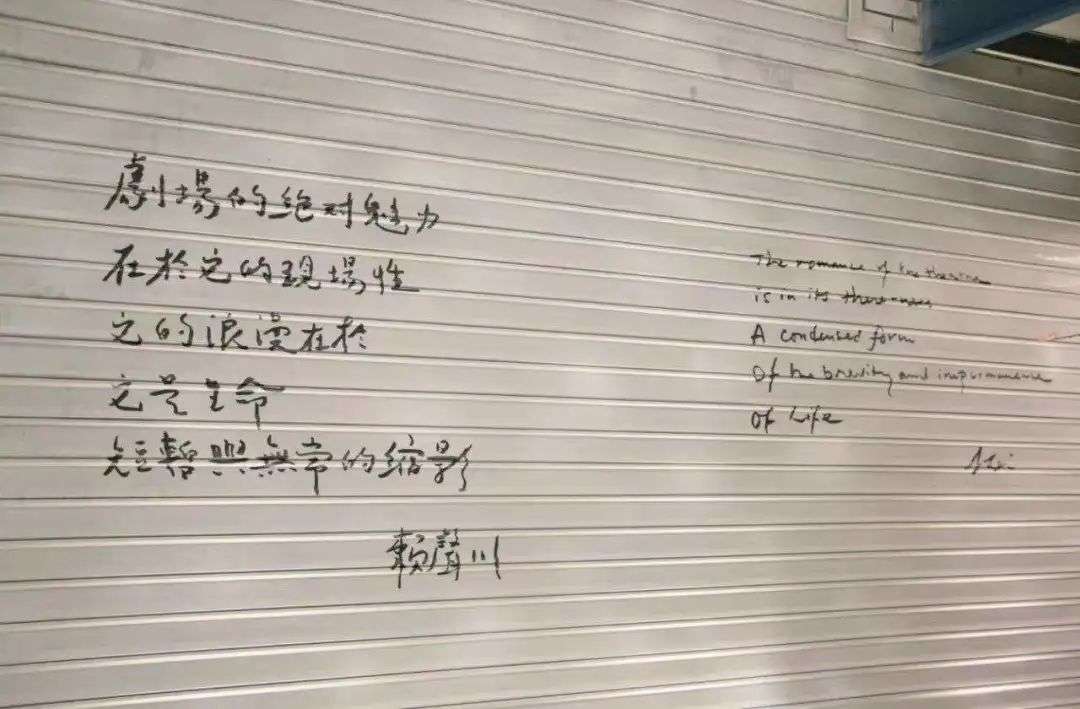 劇場的絕对魅力
在於它的現場性
它的浪漫在於
它是生命
短暫與無常的縮影
賴聲川
The romance of the theatre
is in its thereness
A condensed form
Of the brevity and impermanence
Of Life